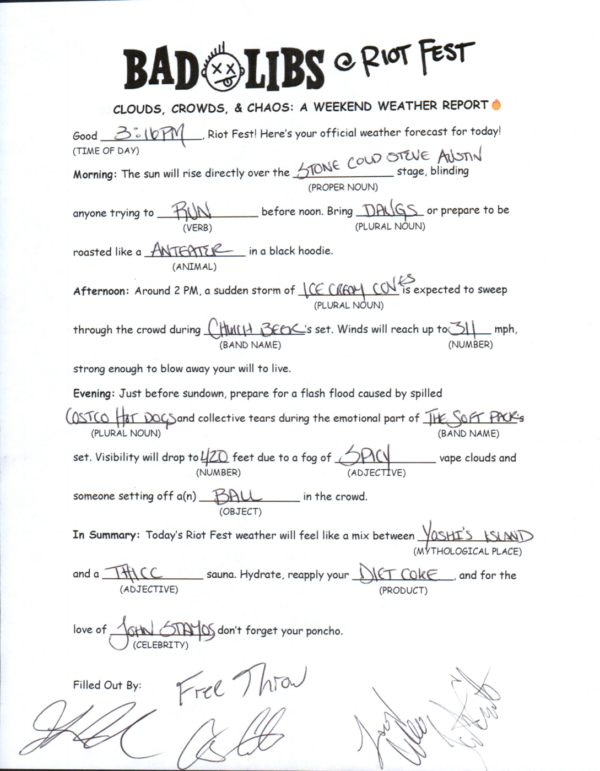 BAD LIBS @ RIOT FEST
CLOUDS, CROWDS, & CHAOS: A WEEKEND WEATHER REPORT🔥
Good 3:16PM, Riot Fest! Here's your official weather forecast for today!
(TIME OF DAY)
Morning: The sun will rise directly over the STONE COLD STEVE AUSTIN stage, blinding
(PROPER NOUN)
anyone trying to RUN before noon. Bring DAWGS or prepare to be
(VERB) (PLURAL NOUN)
roasted like a ANTEATER in a black hoodie.
(ANIMAL)
Afternoon: Around 2 PM, a sudden storm of ICE CREAM CONES is expected to sweep
(PLURAL NOUN)
through the crowd during 's set. Winds will reach up to 311 mph,
(BAND NAME) (NUMBER)
strong enough to blow away your will to live.
Evening: Just before sundown, prepare for a flash flood caused by spilled
COSTCO HOT DOGS and collective tears during the emotional part of THE SOFT PACK's
(PLURAL NOUN) (BAND NAME)
set. Visibility will drop to 420 feet due to a fog of SPICY vape clouds and
(NUMBER) (ADJECTIVE)
someone setting off a(n) BALL in the crowd.
(OBJECT)
In Summary: Today's Riot Fest weather will feel like a mix between YOSHI'S ISLAND
(MYTHOLOGICAL PLACE)
and a THICC sauna. Hydrate, reapply your DIET COKE, and for the
(ADJECTIVE) (PRODUCT)
love of JOHN STAMOS don't forget your poncho.
(CELEBRITY)
Filled Out By: Free Throw